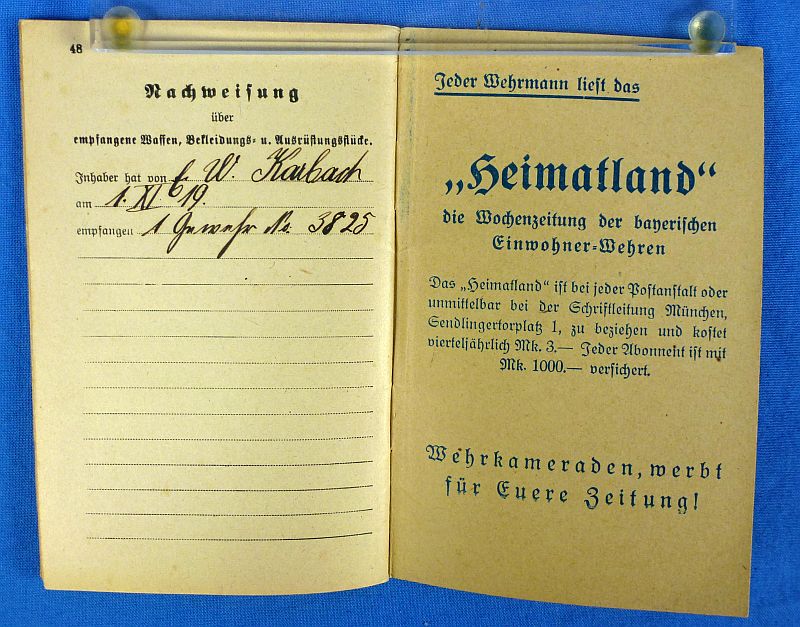 48
Nachweisung
über
empfangene Waffen, Bekleidungs- u. Ausrüstungsstücke.
Inhaber hat von E. W. Karbach
am 1. XI 19
empfangen 1 Gewehr No. 3825
Jeder Wehrmann liest das
„Heimatland“
die Wochenzeitung der bayerischen
Einwohner-Wehren
Das „Heimatland“ ist bei jeder Postanstalt oder
unmittelbar bei der Schriftleitung München,
Sendlingertorplatz 1, zu beziehen und kostet
vierteljährlich Mk. 3.— Jeder Abonnent ist mit
Mk. 1000.— versichert.
Wehrkameraden, werbt
für Euere Zeitung!